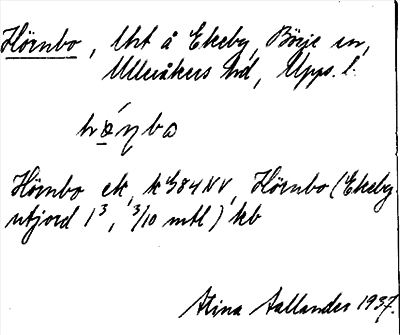 Hörnbo, lht å Ekeby, Börje sn,
Ulleråkers hd, Upps. l.
hǿɳbo
Hörnbo ek, k 984 NV, Hörnbo (Ekeby
utjord 1³, 3/10 mtl) kb
Stina Aallander 1937.